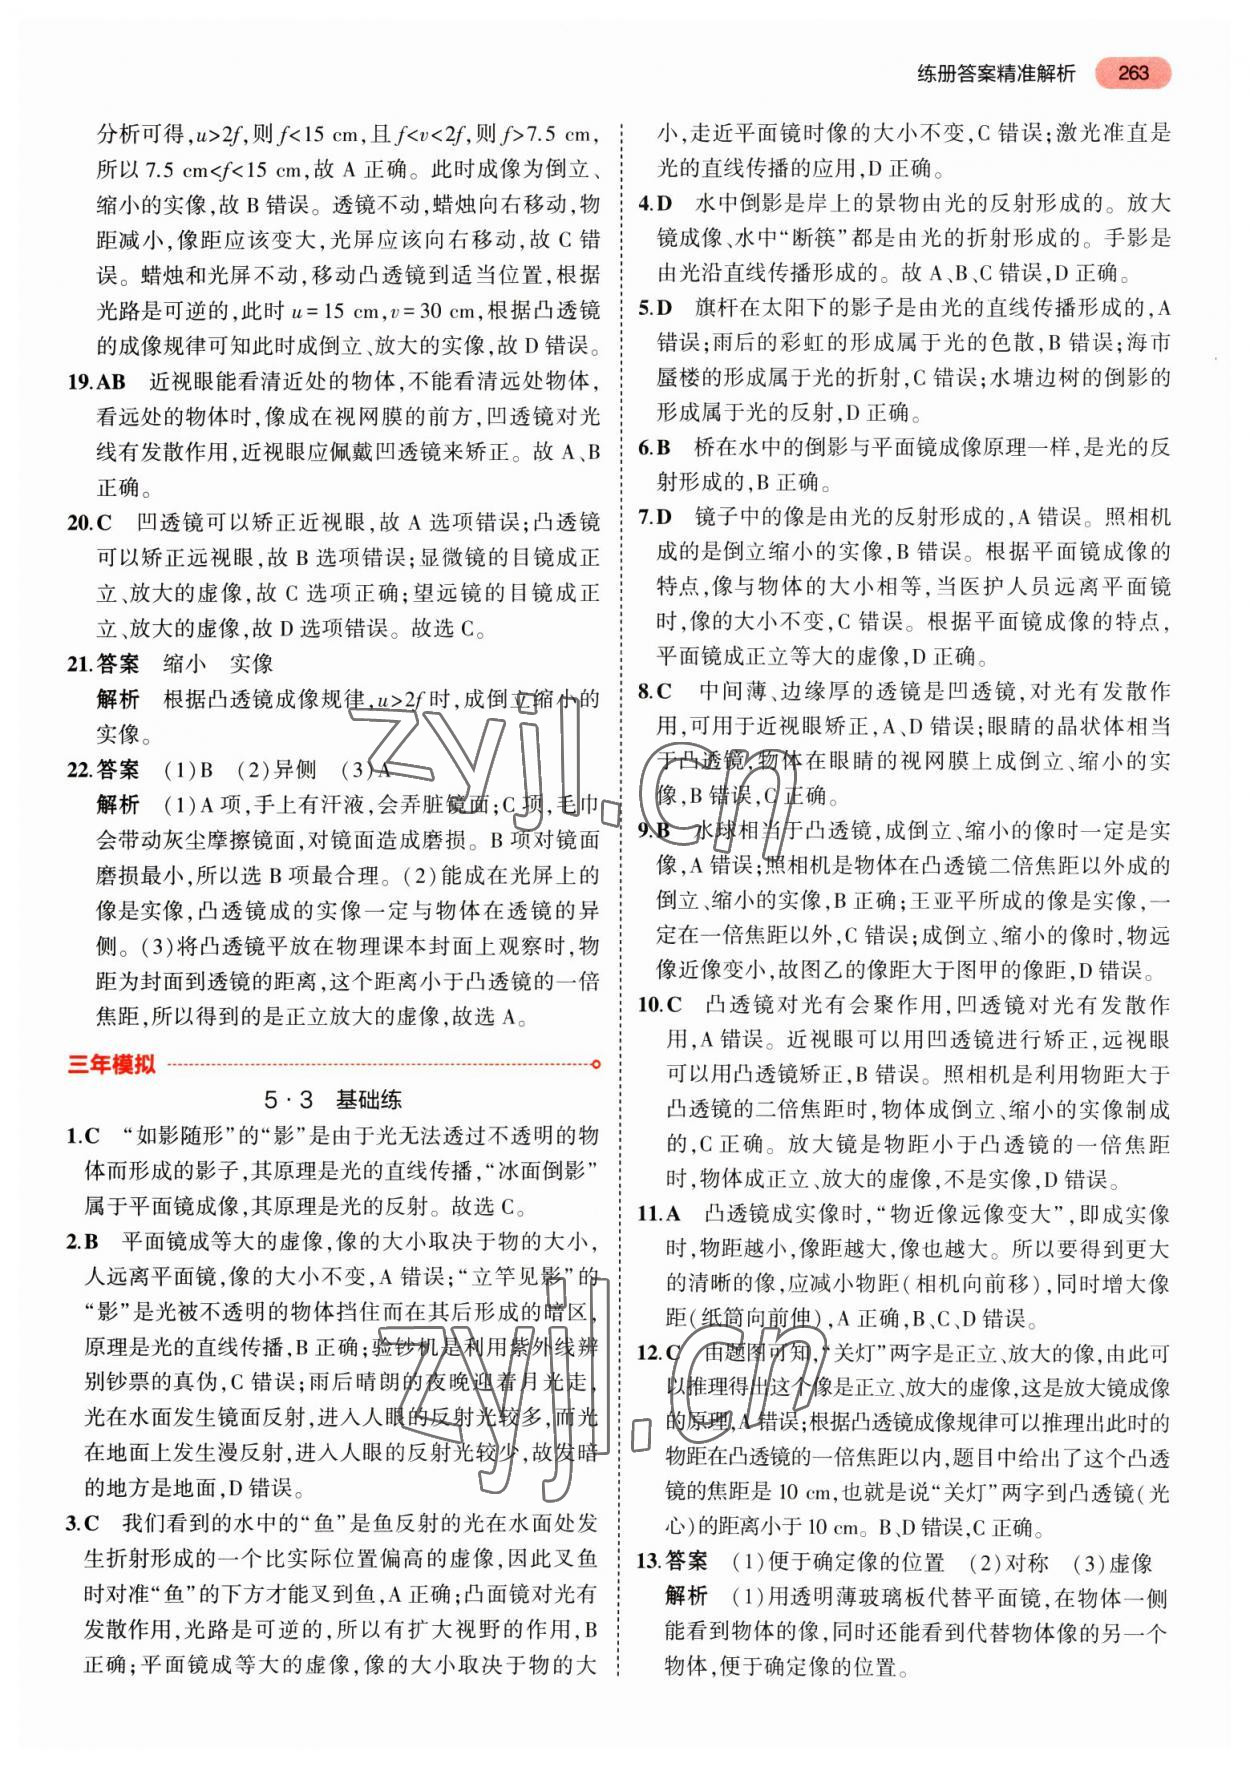 练册答案精准解析 263
分析可得,u>2f,则f<15 cm,且f<v<2f,则f>7.5 cm,
所以7.5 cm<f<15 cm,故A正确。此时成像为倒立、
缩小的实像,故B错误。透镜不动,蜡烛向右移动,物
距减小,像距应该变大,光屏应该向右移动,故C错
误。蜡烛和光屏不动,移动凸透镜到适当位置,根据
光路是可逆的,此时u=15 cm,v=30 cm,根据凸透镜
的成像规律可知此时成倒立、放大的实像,故D错误。
19.AB 近视眼能看清近处的物体,不能看清远处物体,
看远处的物体时,像成在视网膜的前方,凹透镜对光
线有发散作用,近视眼应佩戴凹透镜来矫正。故A、B
正确。
20.C 凹透镜可以矫正近视眼,故A选项错误;凸透镜
可以矫正远视眼,故B选项错误;显微镜的目镜成正
立、放大的虚像,故C选项正确;望远镜的目镜成正
立、放大的虚像,故D选项错误。故选C。
21.答案 缩小 实像
解析 根据凸透镜成像规律,u>2f时,成倒立缩小的
实像。
22.答案 (1)B (2)异侧 (3)A
解析 (1)A项,手上有汗液,会弄脏镜面;C项,毛巾
会带动灰尘摩擦镜面,对镜面造成磨损。B项对镜面
磨损最小,所以选B项最合理。(2)能成在光屏上的
像是实像,凸透镜成的实像一定与物体在透镜的异
侧。(3)将凸透镜平放在物理课本封面上观察时,物
距为封面到透镜的距离,这个距离小于凸透镜的一倍
焦距,所以得到的是正立放大的虚像,故选A。
三年模拟
5·3 基础练
1.C “如影随形”的“影”是由于光无法透过不透明的物
体而形成的影子,其原理是光的直线传播,“冰面倒影”
属于平面镜成像,其原理是光的反射。故选C。
2.B 平面镜成等大的虚像,像的大小取决于物的大小,
人远离平面镜,像的大小不变,A错误;“立竿见影”的
“影”是光被不透明的物体挡住而在其后形成的暗区,
原理是光的直线传播,B正确;验钞机是利用紫外线辨
别钞票的真伪,C错误;雨后晴朗的夜晚迎着月光走,
光在水面发生镜面反射,进入人眼的反射光较多,而光
在地面上发生漫反射,进入人眼的反射光较少,故发暗
的地方是地面,D错误。
3.C 我们看到的水中的“鱼”是鱼反射的光在水面处发
生折射形成的一个比实际位置偏高的虚像,因此叉鱼
时对准“鱼”的下方才能叉到鱼,A正确;凸面镜对光有
发散作用,光路是可逆的,所以有扩大视野的作用,B
正确;平面镜成等大的虚像,像的大小取决于物的大
小,走近平面镜时像的大小不变,C错误;激光准直是
光的直线传播的应用,D正确。
4.D 水中倒影是岸上的景物由光的反射形成的。放大
镜成像、水中“断筷”都是由光的折射形成的。手影是
由光沿直线传播形成的。故A、B、C错误,D正确。
5.D 旗杆在太阳下的影子是由光的直线传播形成的,A
错误;雨后的彩虹的形成属于光的色散,B错误;海市
蜃楼的形成属于光的折射,C错误;水塘边树的倒影的
形成属于光的反射,D正确。
6.B 桥在水中的倒影与平面镜成像原理一样,是光的反
射形成的,B正确。
7.D 镜子中的像是由光的反射形成的,A错误。照相机
成的是倒立缩小的实像,B错误。根据平面镜成像的
特点,像与物体的大小相等,当医护人员远离平面镜
时,像的大小不变,C错误。根据平面镜成像的特点,
平面镜成正立等大的虚像,D正确。
8.C 中间薄、边缘厚的透镜是凹透镜,对光有发散作
用,可用于近视眼矫正,A、D错误;眼睛的晶状体相当
于凸透镜,物体在眼睛的视网膜上成倒立、缩小的实
像,B错误,C正确。
9.B 水球相当于凸透镜,成倒立、缩小的像时一定是实
像,A错误;照相机是物体在凸透镜二倍焦距以外成的
倒立、缩小的实像,B正确;王亚平所成的像是实像,一
定在一倍焦距以外,C错误;成倒立、缩小的像时,物远
像近像变小,故图乙的像距大于图甲的像距,D错误。
10.C 凸透镜对光有会聚作用,凹透镜对光有发散作
用,A错误。近视眼可以用凹透镜进行矫正,远视眼
可以用凸透镜矫正,B错误。照相机是利用物距大于
凸透镜的二倍焦距时,物体成倒立、缩小的实像制成
的,C正确。放大镜是物距小于凸透镜的一倍焦距
时,物体成正立、放大的虚像,不是实像,D错误。
11.A 凸透镜成实像时,“物近像远像变大”,即成实像
时,物距越小,像距越大,像也越大。所以要得到更大
的清晰的像,应减小物距(相机向前移),同时增大像
距(纸筒向前伸),A正确,B、C、D错误。
12.C 由题图可知,“关灯”两字是正立、放大的像,由此可
以推理得出这个像是正立、放大的虚像,这是放大镜成像
的原理,A错误;根据凸透镜成像规律可以推理出此时的
物距在凸透镜的一倍焦距以内,题目中给出了这个凸透
镜的焦距是10 cm,也就是说“关灯”两字到凸透镜(光
心)的距离小于10 cm。B、D错误,C正确。
13.答案 (1)便于确定像的位置 (2)对称 (3)虚像
解析 (1)用透明薄玻璃板代替平面镜,在物体一侧
能看到物体的像,同时还能看到代替物体像的另一个
物体,便于确定像的位置。
zyjl.cn
zyjl.cn